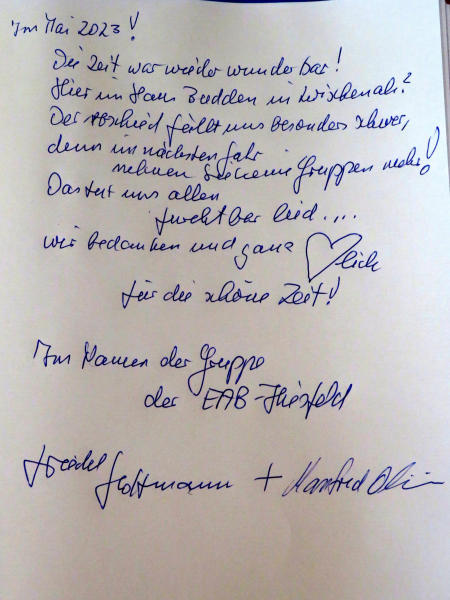 Im Mai 2023!
Die Zeit war wieder wunderbar!
Hier im Haus Bedden in Zwischenah?
Der Abschied fällt uns besonders schwer,
denn im nächsten Jahr
nehmen Sie keine Gruppen mehr!
Das tut uns allen
furchtbar leid....
wir bedanken uns ganz ♡lich
für die schöne Zeit!
Im Namen der Gruppe
der EAB-Hiesfeld
Friedel + Manfred